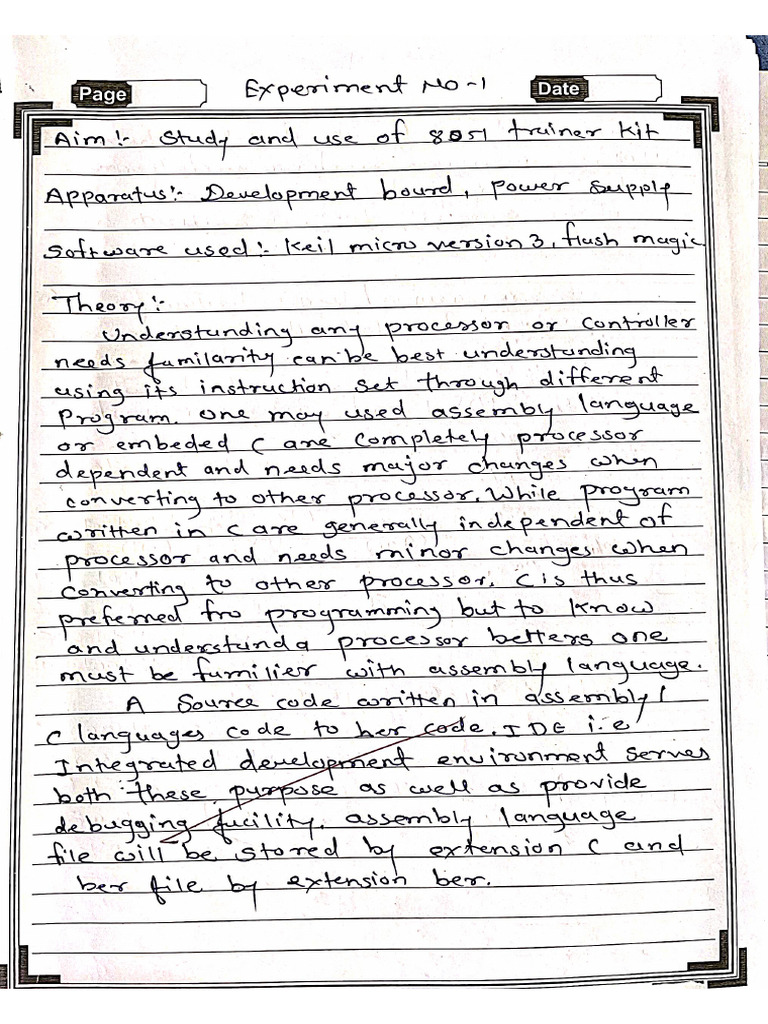 Page
Experiment No-1
Date
Aim :- Study and use of 8051 trainer kit
Apparatus :- Development board, power supply
Software used :- Keil micro version 3, flash magic
Theory :-
Understanding any processor or controller
needs familarity can be best understanding
using its instruction set through different
program. One may used assembly language
or embeded C are completely processor
dependent and needs major changes when
converting to other processor. While program
written in C are generally independent of
processor and needs minor changes when
converting to other processor. C is thus
preferred fro programming but to know
and understand a processor betters one
must be fumilier with assembly language.
A Source code written in assembly /
C languages code to her code. IDE i.e
Integrated development environment serves
both these purpose as well as provide
debugging fucility. assembly language
file will be stored by extension C and
ber file by extension ber.